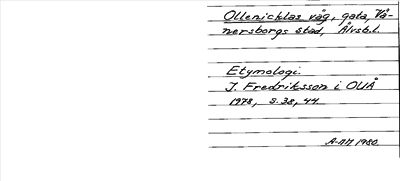 Ollenicklas väg, gata, Vä-
nersborgs stad, Älvsb.l.
Etymologi.
J. Fredriksson i OUÅ
1978, s. 38, 44.
A-MM 1980.